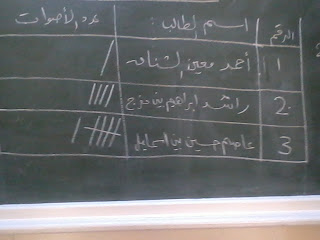 الرقم اسم الطالب : عدد الأصوات
1 أحمد معين الشناف /
2 راشد ابراهيم بن فرج ////
3 عاصم حسين بن اسماعيل